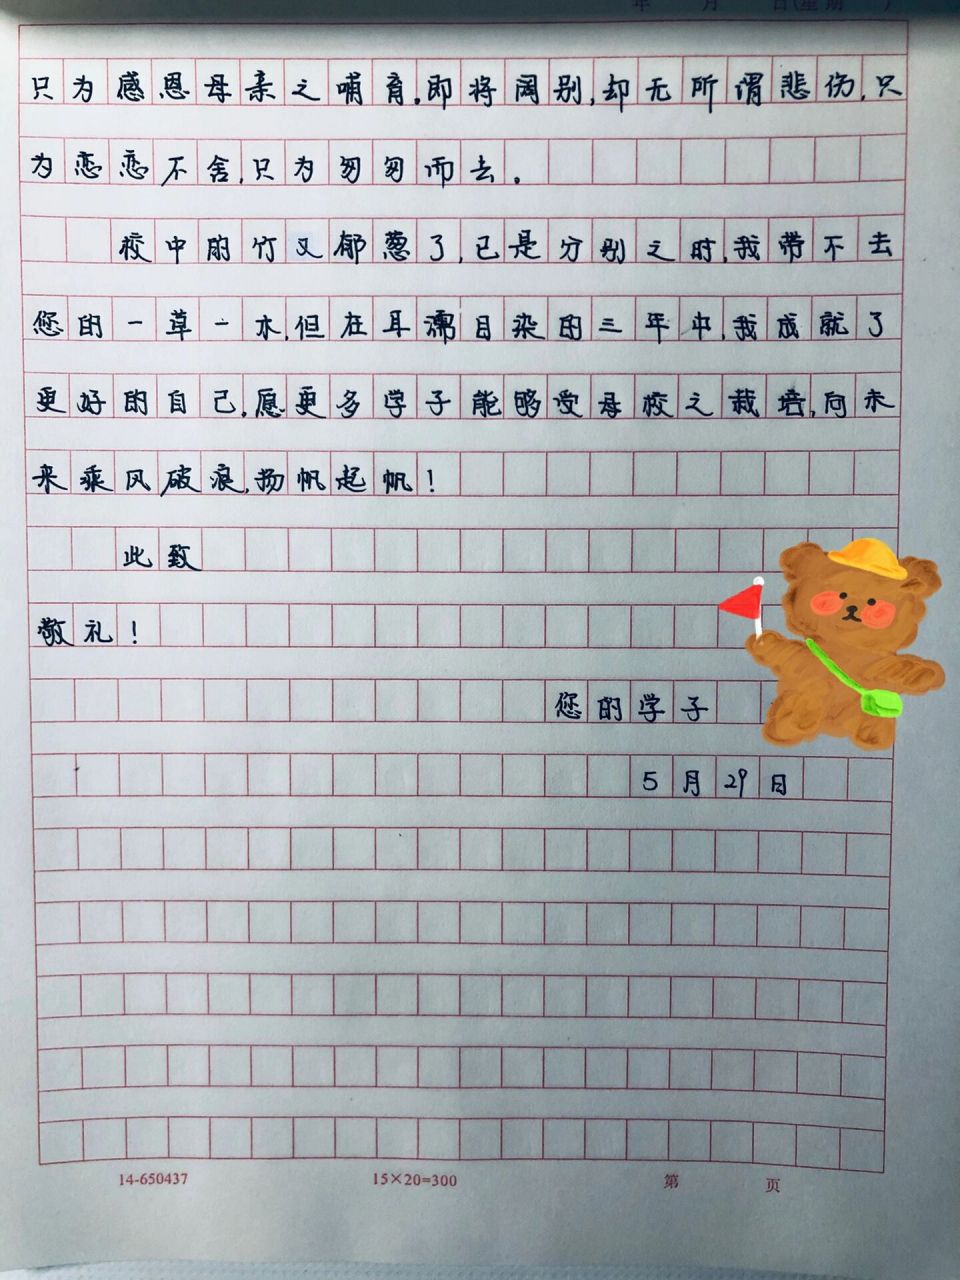 年 月 日(星期 )
只为感恩母亲之哺育。即将阔别,却无所谓悲伤,只
为恋恋不舍,只为匆匆而去。
校中的竹又郁葱了,已是分别之时,我带不去
您的一草一木,但在耳濡目染的三年中,我成就了
更好的自己,愿更多学子能够受母校之栽培,向未
来乘风破浪,扬帆起帆!
此致
敬礼!
您的学子
5月29日
14-650437 15×20=300 第 页